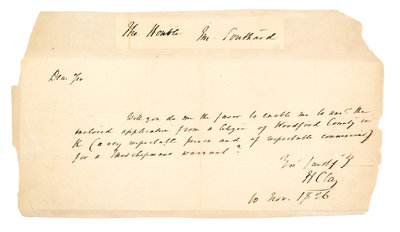 The Honble Mr. Southard
Dear Sir
Will you do me the favor to enable me to ansr. the
enclosed application from a Citizen of Woodford County in
K (a very respectable person and of respectable connexions)
for a Midshipmans warrant?
H Clay
10 Nov. 1826